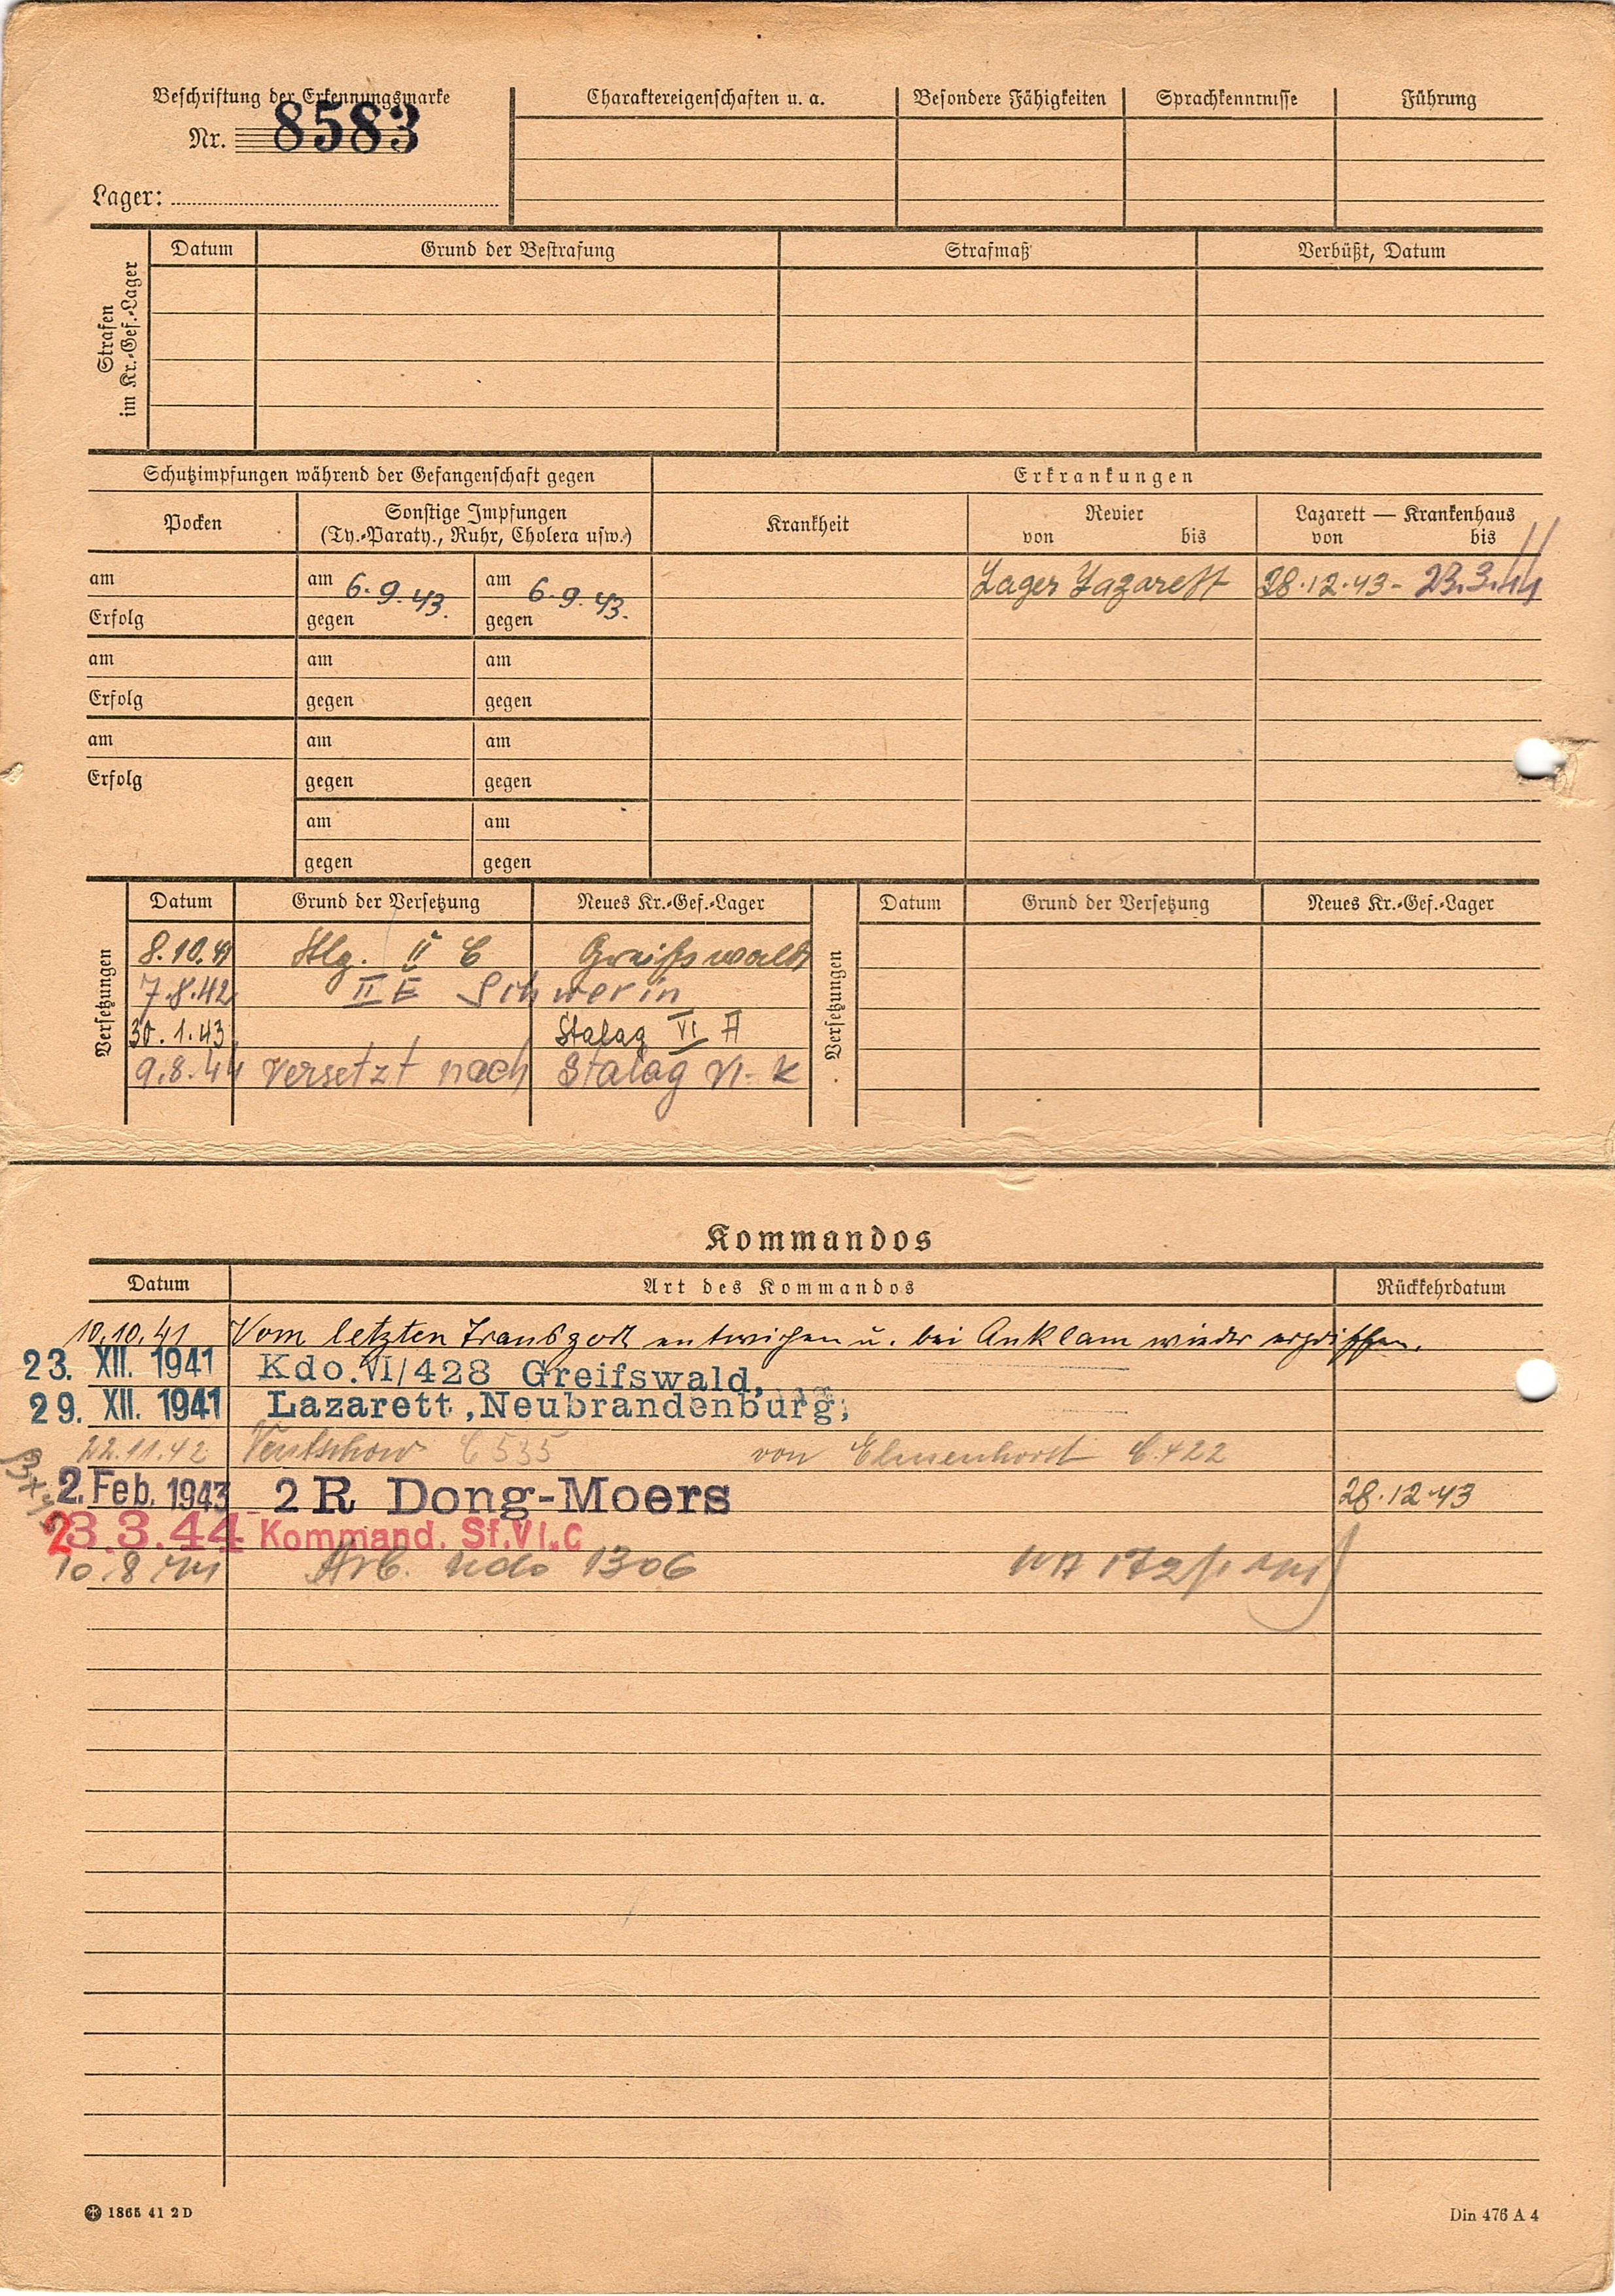 Beschriftung der Erkennungsmarke
Nr. 8583
Lager:
Charaktereigenschaften u. a. Besondere Fähigkeiten Sprachkenntnisse Führung
Strafen
im Kr.-Gef.-Lager
Datum Grund der Bestrafung Strafmaß Verbüßt, Datum
Schutzimpfungen während der Gefangenschaft gegen Erkrankungen
Pocken Sonstige Impfungen Krankheit Revier Lazarett — Krankenhaus
(Ty.-Paraty., Ruhr, Cholera usw.) von bis von bis
am am 6.9.43. am 6.9.43. Lager Lazarett 28.12.43 - 23.3.44
Erfolg gegen gegen
am am am
Erfolg gegen gegen
am am am
Erfolg gegen gegen
am am
gegen gegen
Versetzungen
Datum Grund der Versetzung Neues Kr.-Gef.-Lager
8.10.41 Stlg. II C Greifswald
7.8.42 II E Schwerin
30.1.43 Stalag VI A
9.8.44 versetzt nach Stalag VI-K
Versetzungen
Datum Grund der Versetzung Neues Kr.-Gef.-Lager
Kommandos
Datum Art des Kommandos Rückkehrdatum
10.10.41 Vom letzten Transport entwichen u. bei Anklam wieder ergriffen.
23. XII. 1941 Kdo.VI/428 Greifswald,
29. XII. 1941 Lazarett,Neubrandenburg;
22.11.42 Ventschow C 535 von Elmenhorst C.422
2. Feb. 1943 2 R Dong-Moers 28.12.43
23.3.44 Kommand. Sf.VI.C
10.8.44 Arb. Kdo 1306
1865 41 2 D
Din 476 A 4